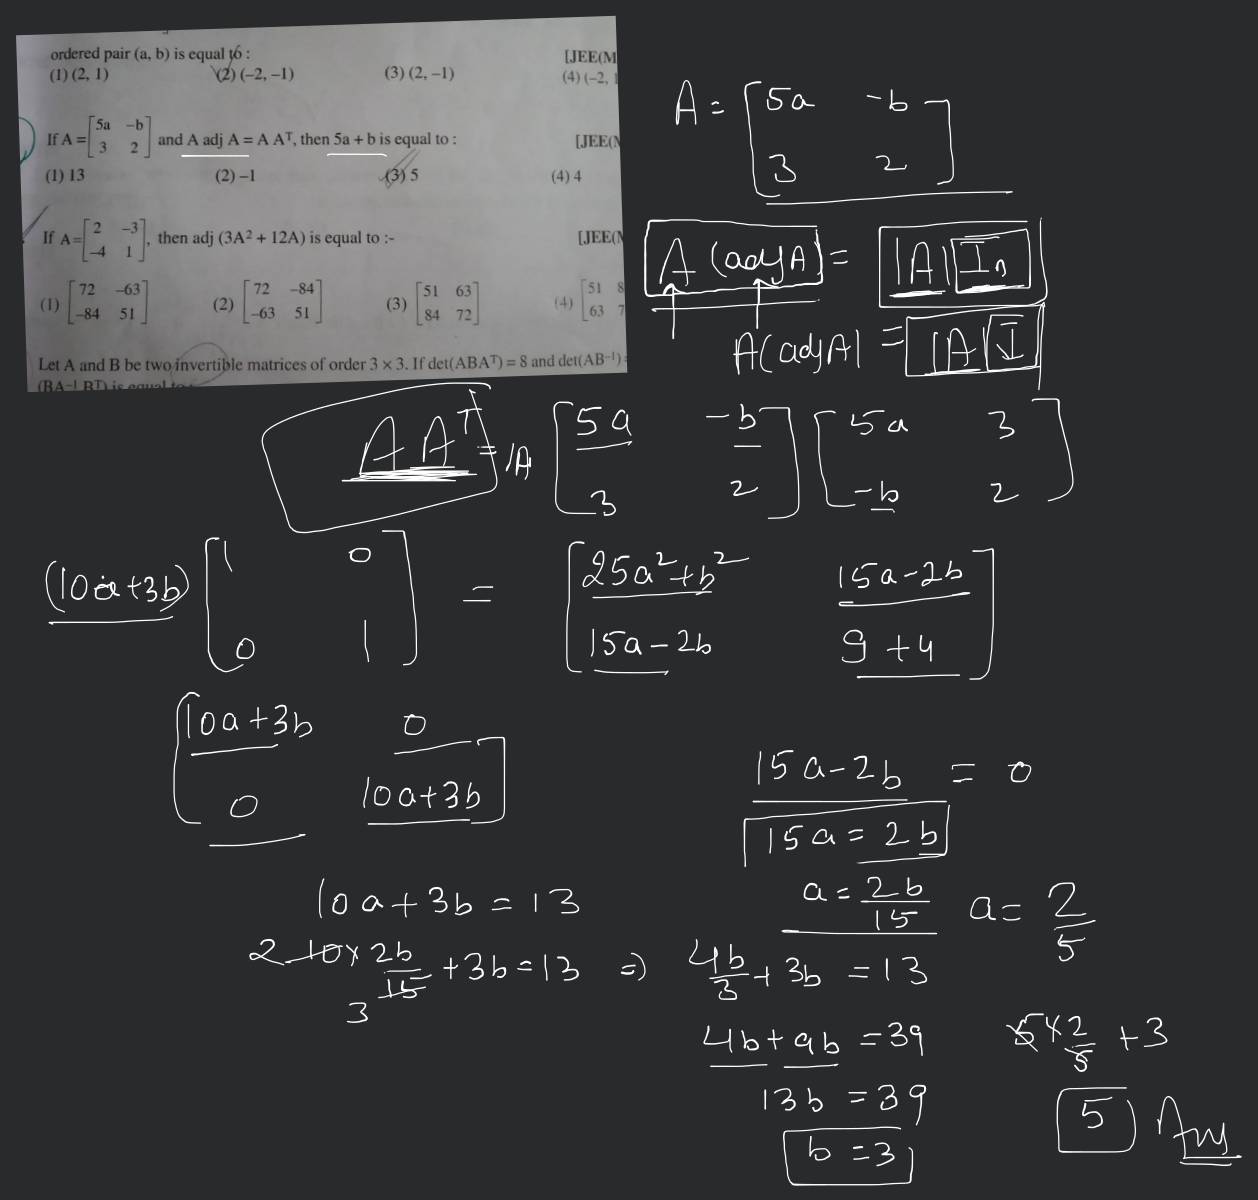 ordered pair (a, b) is equal to :
[JEE(M
(1) (2, 1) (2) (–2, –1) (3) (2, –1) (4) (–2, 1
If A = [5a –b 3 2] and A adj A = A Aᵀ, then 5a + b is equal to : [JEE(M
(1) 13 (2) –1 (3) 5 (4) 4
If A = [2 –3 –4 1], then adj (3A² + 12A) is equal to :- [JEE(M
(1) [72 –63 –84 51] (2) [72 –84 –63 51] (3) [51 63 84 72] (4) [51 8 63 7
Let A and B be two invertible matrices of order 3 × 3. If det(ABAᵀ) = 8 and det(AB⁻¹) =
(BA⁻¹ Bᵀ) is equal to
A = [5a -b
3 2]
A (adj A) = |A| Iₙ
A(adj A) = |A| I
A Aᵀ = [5a -b [5a 3
3 2] -b 2]
(10a+3b) [1 0 = [25a²+b² 15a-2b
0 1] 15a-2b 9+4]
[10a+3b 0
0 10a+3b]
15a-2b = 0
15a = 2b
a = 2b/15 a = 2/5
10a + 3b = 13
2 10 × 2b/15 3 + 3b = 13 ⇒ 4b/3 + 3b = 13
4b + 9b = 39
5 × 2/5 + 3
13b = 39
5 Ans
b = 3